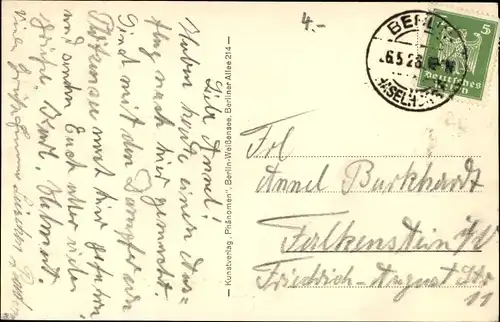 4.-
BERLIN
6.5.26
HASELHORST
5
Deutsches
Lilli Annel!
Haben heute einen Aus=
flug nach hier gemacht.
Sind mit dem Dampfer von
Plötzensee nach hier gefahren
und senden Euch allen viele
Grüße Karl, Helmut.
Viele Grüße
— Kunstverlag „Phänomen", Berlin-Weißensee, Berliner Allee 214 —
Frl
Annel Burkhardt
Falkenstein i/V
Friedrich-August Str
11